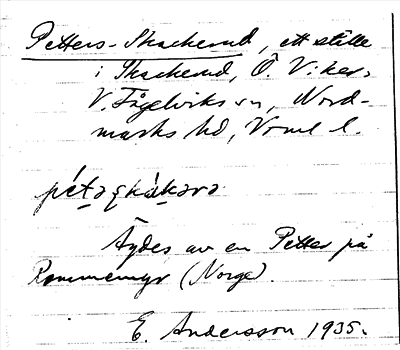 Petters-Skackerud, ett ställe
i Skackerud, Ö. Viker,
V. Fågelviks sn, Nord-
marks hd, Vrml l.
Äydes av en Petter på
Rommemyr (Norge).
E. Andersson 1935.